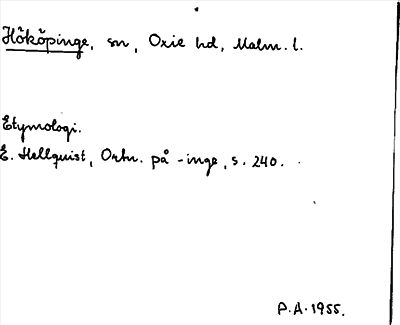 Hököpinge, sn, Oxie hd, Malm. l.
Etymologi.
E. Hellquist, Ortn. på -inge, s. 240.
P.A. 1955.